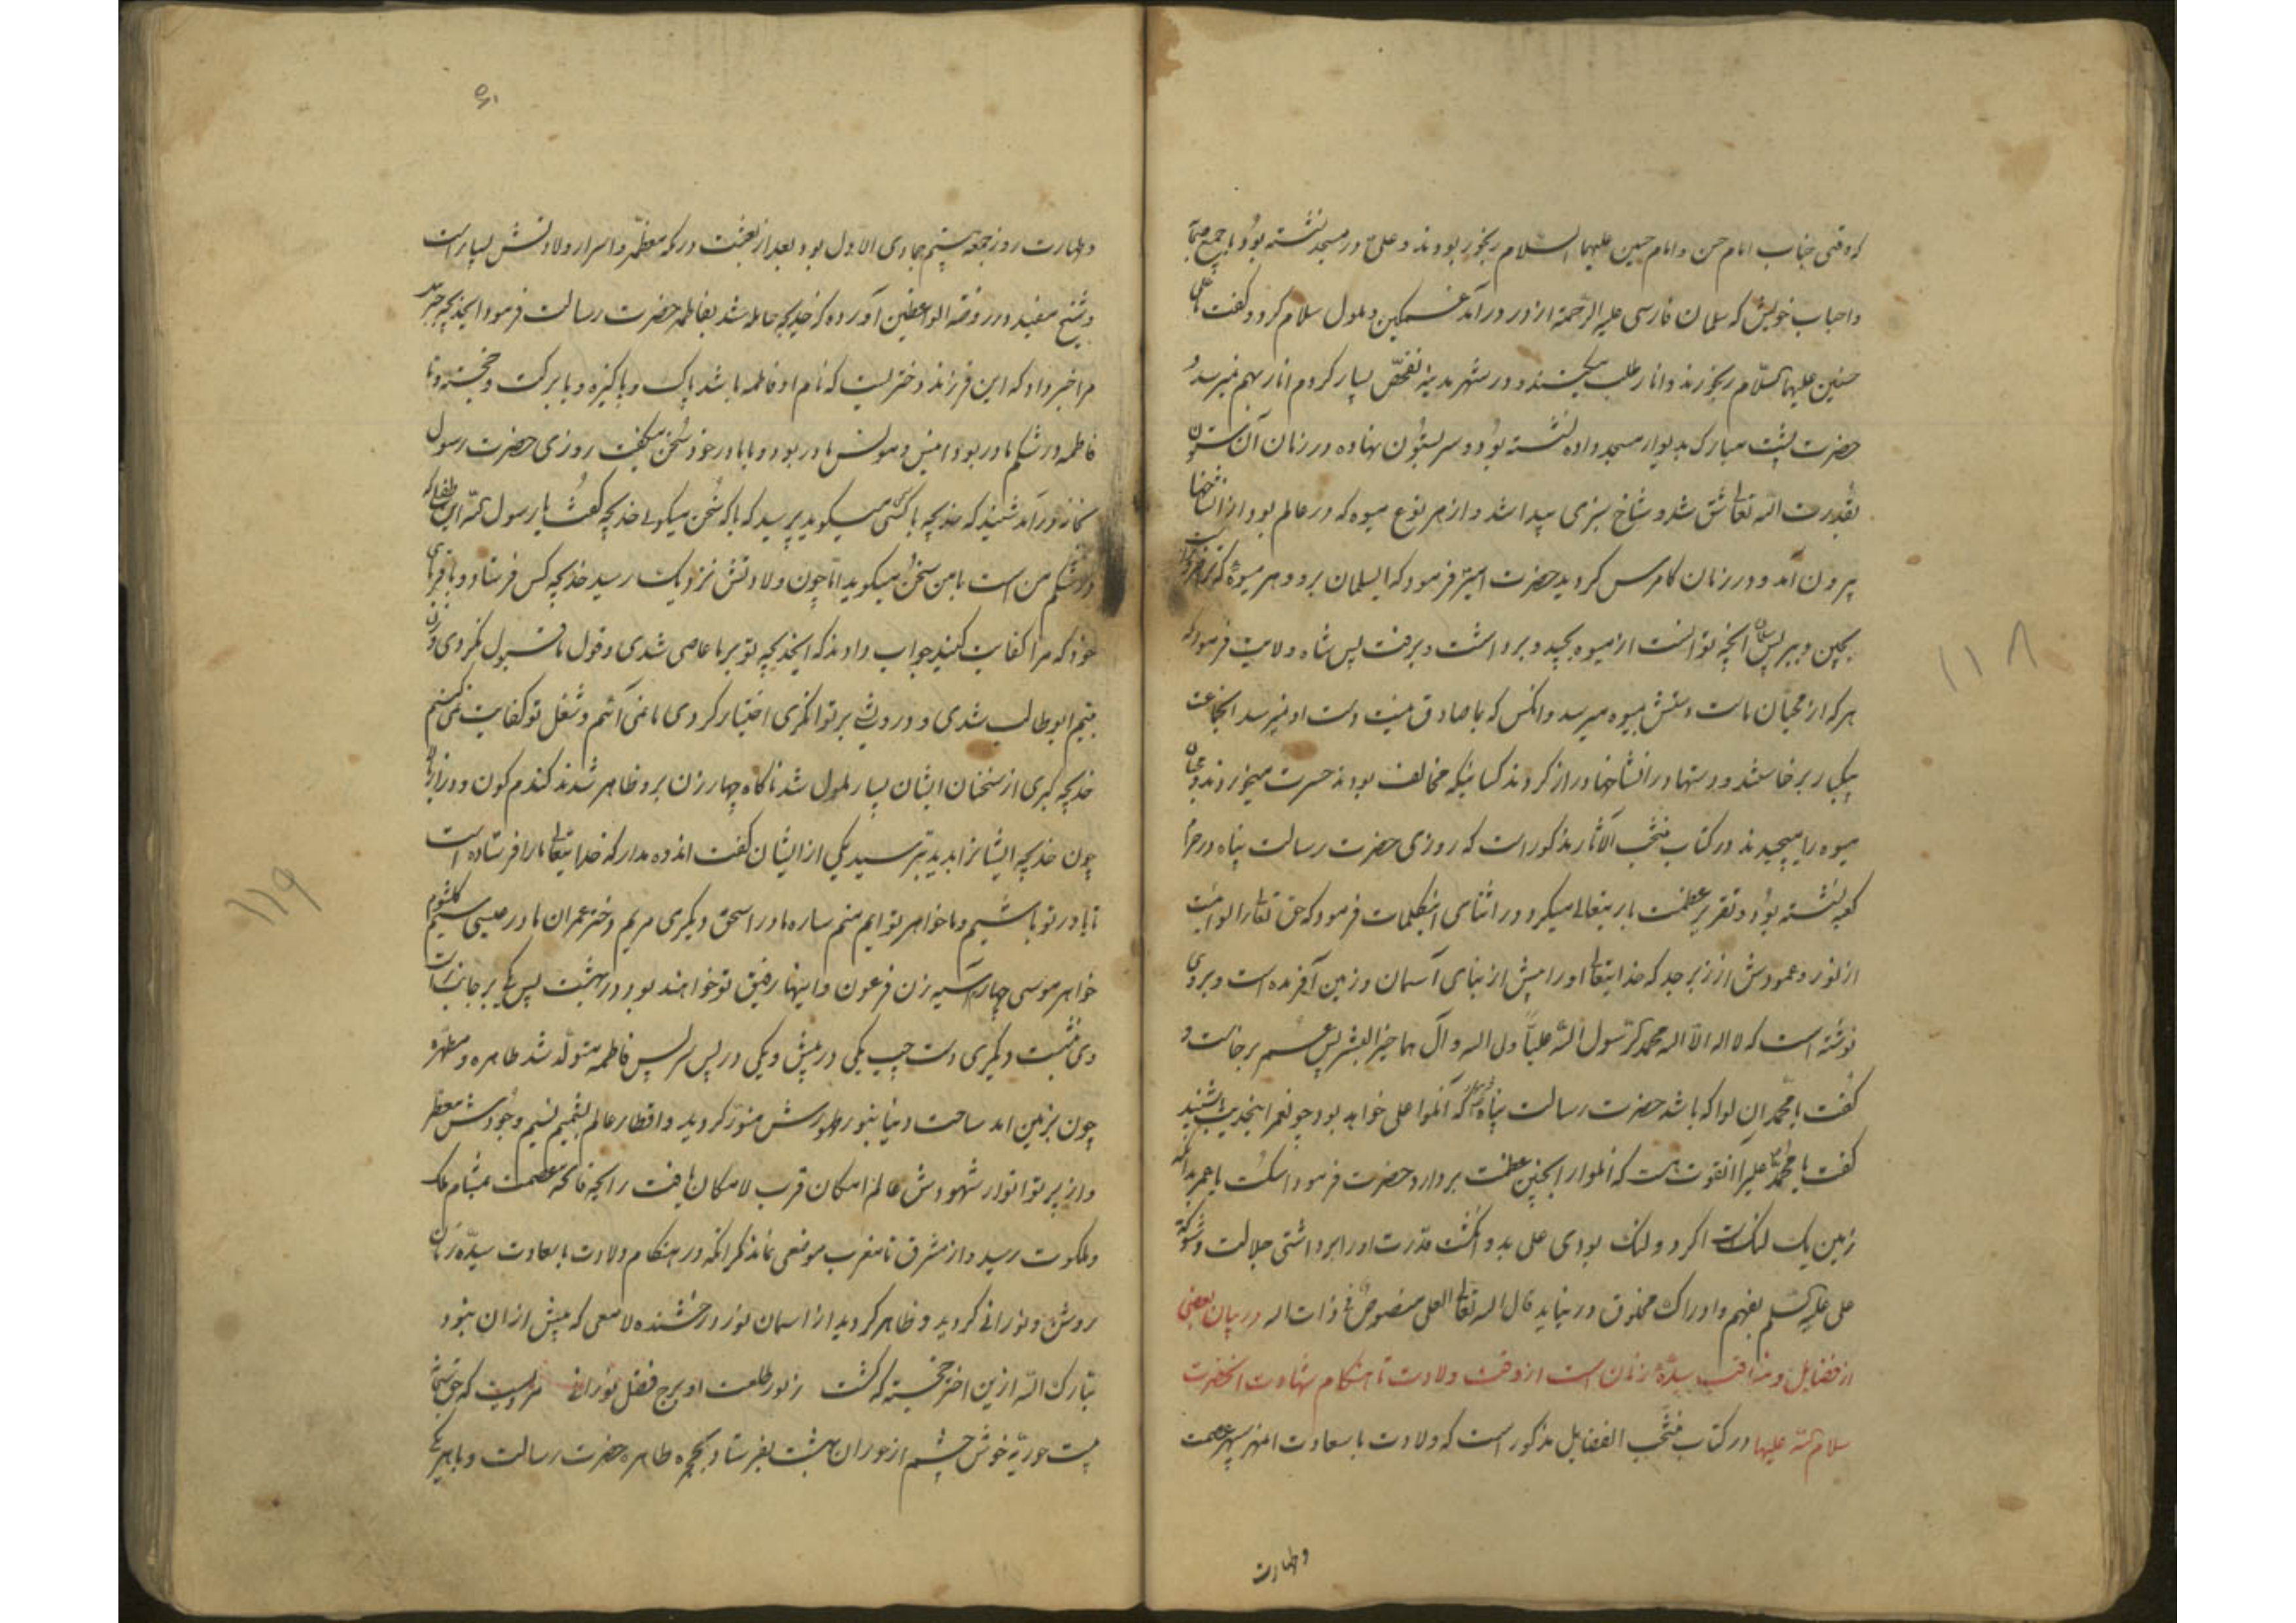 که وقتی جناب امام حسن و امام حسین علیهما السلام رنجور بودند و علی در مسجد نشسته بود با جمیع
و احباب خویش که سلمان فارسی علیه الرحمة از در درآمد غمکین و ملول سلام کرد و کفت یا علی
حسنین علیهما السلام رنجورند و انار طلب میکنند و در شهر مدینه تفحص بسیار کردم انار بهم نمیرسد
حضرت پشت مبارک بدیوار مسجد داده نشسته بود و سر بستون نهاده در زمان آن ستون
بقدرت الله تعالی شق شد و شاخ سبزی پیدا شد و از هر نوع میوه که در عالم بود از آن شاخها
بیرون آمد و در زمان کامرس کردید حضرت امیر فرمود که ای سلمان برو و هر میوهٔ که
بچین و ببر پس سلمان آنچه توانست از میوه بچید و برداشت و برفت پس شاه ولایت فرمود که
هر که از محبان ماست دستش بمیوه میرسد و آنکس که با ما صادق نیست دست او نمیرسد آنجماعت
بیکبار برخاستند و دستها در آنشاخها دراز کردند کسانیکه مخالف بودند حسرت میخوردند و محبان
میوه را میچیدند در کتاب منتخب الآثار مذکور است که روزی حضرت رسالت پناه در حرم
کعبه نشسته بود و تقریر عظمت باریتعالی میکرد در اثنای اینکلمات فرمود که حق تعالی را لوائیست
از نور و عمودش از زبرجد که خدایتعالی او را پیش از بنای آسمان و زمین آفریده است و بروی
نوشته است که لا اله الا الله محمد رسول الله علیا ولی الله و آل هما خیر البشر پس عمر برخاست و
کفت یا محمد آن لوا که باشد حضرت رسالت پناه که آنلوا علی خواهد بود چون عمر اینحدیث بشنید
کفت یا محمد علی را آنقوت هست که آنلوا را بچنین عظمت بردارد حضرت فرمود اسکت یا عمر بدانکه
زمین یک لنکست اکر دو لنک بودی علی بدو انکشت قدرت او را برداشتی جلالت و شوکت
علی علیه السلم بفهم و ادراک مخلوق در نیاید قال الله تعالی العلی منصوص فی ذات الله در بیان بعضی
از فضایل و مناقب سیدهٔ زنان است از وقت ولادت تا هنکام شهادت آنحضرت
سلام الله علیها در کتاب منتخب الفضایل مذکور است که ولادت با سعادت آن مهر سپهر عصمت
و طهارت
و طهارت روز جمعه بیستم جمادی الاول بود بعد از بعثت در مکه معظمه و اسرار ولادتش بسیار است
و شیخ مفید در روضة الواعظین آورده که خدیجه حامله شد بفاطمه حضرت رسالت فرمود ایخدیجه جبرئیل
مرا خبر داد که این فرزند دختریست که نام او فاطمه باشد پاک و پاکیزه و با برکت و خجسته و تا
فاطمه در شکم مادر بود انیس و مونس مادر بود و با مادر خود سخن میکفت روزی حضرت رسول
بخانه درآمد شنید که خدیجه با کسی سخن میکوید پرسید که با که سخن میکوئی خدیجه کفت یا رسول الله این طفل که
در شکم من است با من سخن میکوید اما چون ولادتش نزدیک رسید خدیجه کس فرستاد و باقربای
خود که مرا کفایت کنید جواب دادند که ایخدیجه تو بر ما عاصی شدی و قول ما قبول نکردی و زن
یتیم ابوطالب شدی و درویشی بر توانکری اختیار کردی ما نمی آئیم و شغل تو کفایت نمیکنیم
خدیجه کبری از سخنان ایشان بسیار ملول شد ناکاه چهار زن برو ظاهر شدند کندم کون و دراز بالا
چون خدیجه ایشانرا بدید بترسید یکی از ایشان کفت اندوه مدار که خدایتعالی ما را فرستاده است
تا یاور تو باشیم و ما خواهر تو ایم منم ساره مادر اسحق دیکری مریم دختر عمران مادر عیسی سیم کلثوم
خواهر موسی چهارم آسیه زن فرعون و اینها رفیق تو خواهند بود در بهشت پس یکی بر جانب راست
وی نشست و دیکری دست چپ یکی در پیش و یکی در پس سر پس فاطمه متولد شد طاهره و مطهره
چون بزمین آمد ساحت دنیا بنور ظهورش منور کردید و اقطار عالم بشمیم نسیم وجودش معطر
و از پرتو انوار شهودش عالم امکان قرب لامکان یافت رایحه فائحه عصمت بمشام ملک
و ملکوت رسید و از مشرق تا مغرب موضعی نماند مکر آنکه در هنکام ولادت با سعادت سیدهٔ زنان
روشن و نورانی کردید و ظاهر کردید از آسمان نور درخشنده لامعی که پیش از ان نبود
تبارک الله ازین اختر خجسته که کشت ز نور طلعت او برج فضل نورانی مرویست که حق تعالی
بیست حوریهٔ خوش چشم از حوران بهشت بفرستاد بحجره طاهره حضرت رسالت و با هر یکی
۱۱۸
۱۱۹